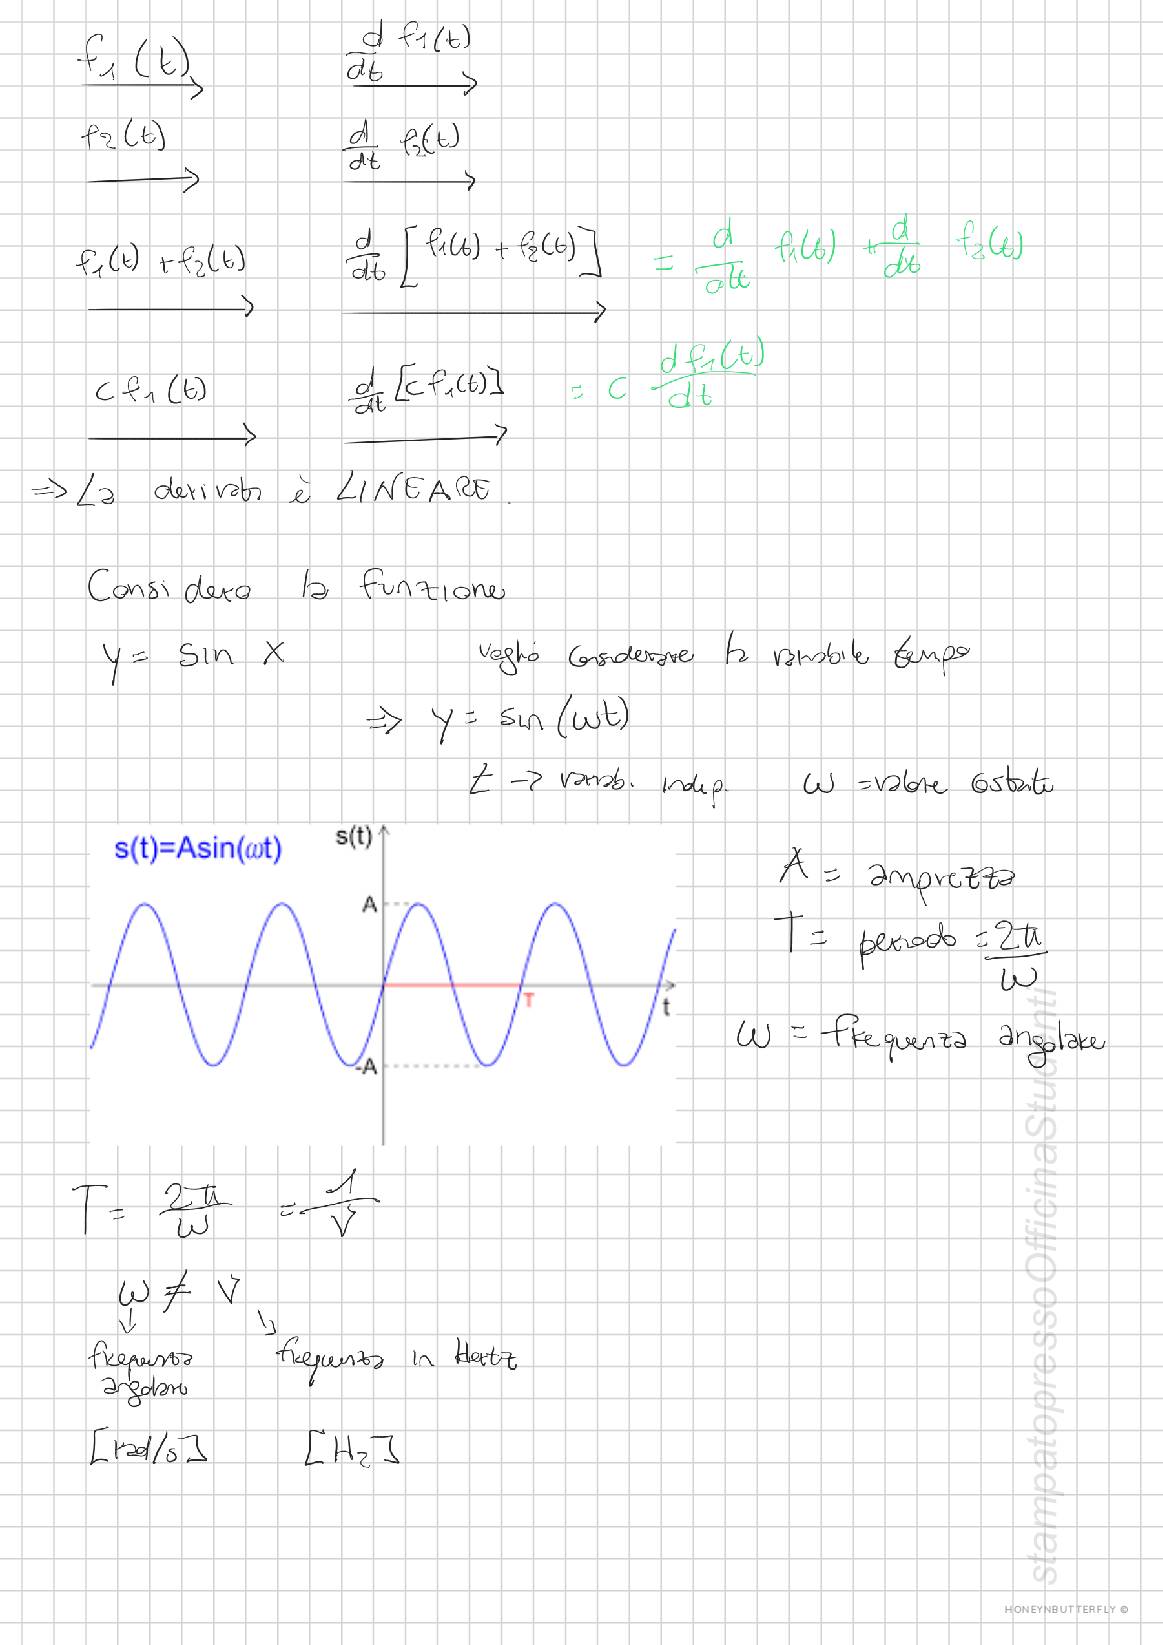 f₁(t) d/dt f₁(t)
f₂(t) d/dt f₂(t)
f₁(t) + f₂(t) d/dt [f₁(t) + f₂(t)] = d/dt f₁(t) + d/dt f₂(t)
c f₁(t) d/dt [c f₁(t)] = c df₁(t)/dt
⇒ La derivata è LINEARE.
Considero la funzione
y = sin x voglio considerare la variabile tempo
⇒ y = sin(ωt)
t → variab. indip. ω = valore costante
s(t)=Asin(ωt) s(t)
A
-A
T
t
A = ampiezza
T = periodo = 2π/ω
ω = frequenza angolare
T = 2π/ω = 1/ν
ω ≠ ν
frequenza angolare frequenza in Hertz
[rad/s] [Hz]
stampatopressoOfficinaStudenti
HONEYNBUTTERFLY ©